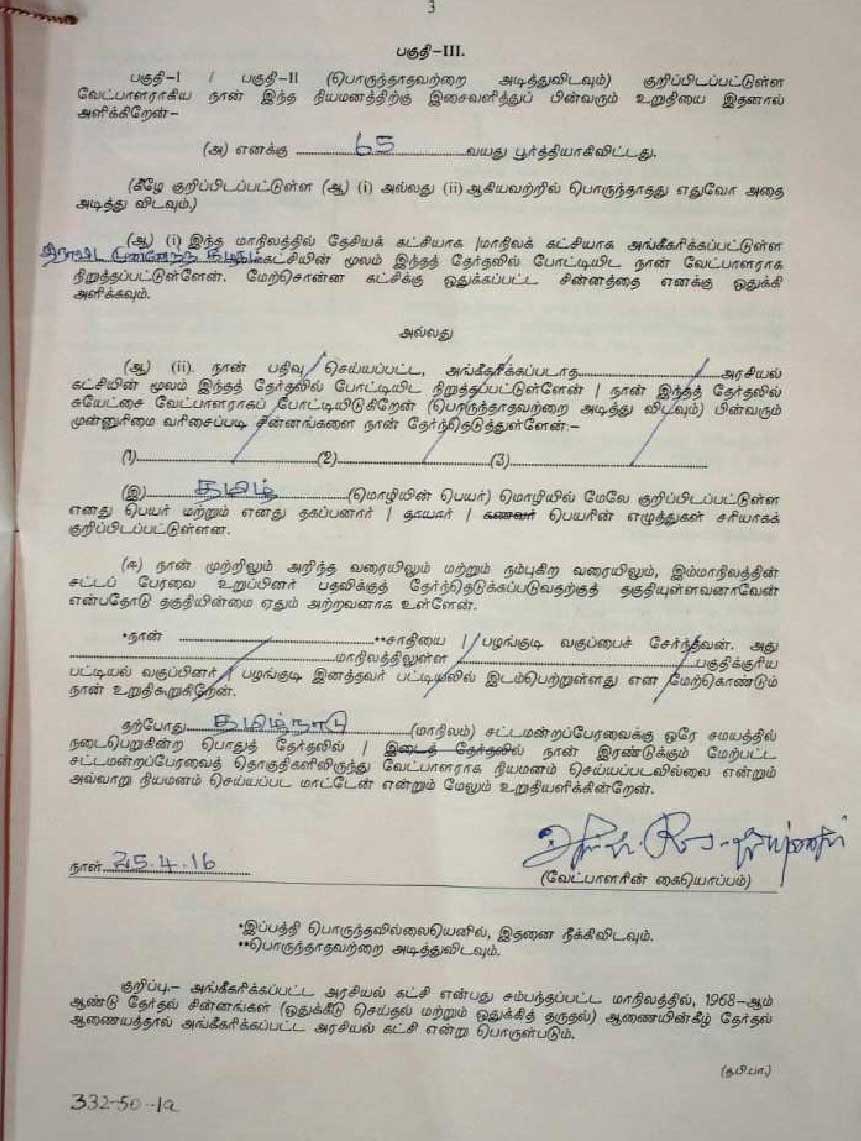 3
பகுதி-III.
பகுதி-I / பகுதி-II (பொருந்தாதவற்றை அடித்துவிடவும்) குறிப்பிடப்பட்டுள்ள
வேட்பாளராகிய நான் இந்த நியமனத்திற்கு இசைவளித்துப் பின்வரும் உறுதியை இதனால்
அளிக்கிறேன்-
(அ) எனக்கு 65 வயது பூர்த்தியாகிவிட்டது.
(கீழே குறிப்பிடப்பட்டுள்ள (ஆ) (i) அல்லது (ii) ஆகியவற்றில் பொருந்தாதது எதுவோ அதை
அடித்து விடவும்.)
(ஆ) (i) இந்த மாநிலத்தில் தேசியக் கட்சியாக /மாநிலக் கட்சியாக அங்கீகரிக்கப்பட்டுள்ள
திராவிட முன்னேற்ற கழகம் கட்சியின் மூலம் இந்தத் தேர்தலில் போட்டியிட நான் வேட்பாளராக
நிறுத்தப்பட்டுள்ளேன். மேற்சொன்ன கட்சிக்கு ஒதுக்கப்பட்ட சின்னத்தை எனக்கு ஒதுக்கி
அளிக்கவும்.
அல்லது
(ஆ) (ii) நான் பதிவு செய்யப்பட்ட, அங்கீகரிக்கப்படாத அரசியல்
கட்சியின் மூலம் இந்தத் தேர்தலில் போட்டியிட நிறுத்தப்பட்டுள்ளேன் / நான் இந்தத் தேர்தலில்
சுயேட்சை வேட்பாளராகப் போட்டியிடுகிறேன் (பொருந்தாதவற்றை அடித்து விடவும்) பின்வரும்
முன்னுரிமை வரிசைப்படி சின்னங்களை நான் தேர்ந்தெடுத்துள்ளேன்:-
(1) (2) (3)
(இ) தமிழ் (மொழியின் பெயர்) மொழியில் மேலே குறிப்பிடப்பட்டுள்ள
எனது பெயர் மற்றும் எனது தகப்பனார் / தாயார் / கணவர் பெயரின் எழுத்துகள் சரியாகக்
குறிப்பிடப்பட்டுள்ளன.
(ஈ) நான் முற்றிலும் அறிந்த வரையிலும் மற்றும் நம்புகிற வரையிலும், இம்மாநிலத்தின்
சட்டப் பேரவை உறுப்பினர் பதவிக்குத் தேர்ந்தெடுக்கப்படுவதற்குத் தகுதியுள்ளவனாவேன்
என்பதோடு தகுதியின்மை ஏதும் அற்றவனாக உள்ளேன்.
*நான் **சாதியை / பழங்குடி வகுப்பைச் சேர்ந்தவன். அது
மாநிலத்திலுள்ள பகுதிக்குரிய
பட்டியல் வகுப்பினர் / பழங்குடி இனத்தவர் பட்டியலில் இடம்பெற்றுள்ளது என மேற்கொண்டும்
நான் உறுதிகூறுகிறேன்.
தற்போது தமிழ்நாடு (மாநிலம்) சட்டமன்றப்பேரவைக்கு ஒரே சமயத்தில்
நடைபெறுகின்ற பொதுத் தேர்தலில் / இடைத் தேர்தலில் நான் இரண்டுக்கும் மேற்பட்ட
சட்டமன்றப்பேரவைத் தொகுதிகளிலிருந்து வேட்பாளராக நியமனம் செய்யப்படவில்லை என்றும்
அவ்வாறு நியமனம் செய்யப்பட மாட்டேன் என்றும் மேலும் உறுதியளிக்கின்றேன்.
நாள் 25.4.16
(வேட்பாளரின் கையொப்பம்)
*இப்பத்தி பொருந்தவில்லையெனில், இதனை நீக்கிவிடவும்.
**பொருந்தாதவற்றை அடித்துவிடவும்.
குறிப்பு.- அங்கீகரிக்கப்பட்ட அரசியல் கட்சி என்பது சம்பந்தப்பட்ட மாநிலத்தில், 1968-ஆம்
ஆண்டு தேர்தல் சின்னங்கள் (ஒதுக்கீடு செய்தல் மற்றும் ஒதுக்கித் தருதல்) ஆணையின்கீழ் தேர்தல்
ஆணையத்தால் அங்கீகரிக்கப்பட்ட அரசியல் கட்சி என்று பொருள்படும்.
(த.பி.பா.)
332-50-1a